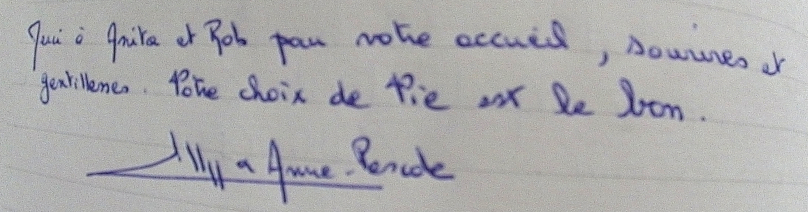 à Anita et Rob pour votre accueil, sourires et
gentillesses. Votre choix de Vie est le bon.
Anne